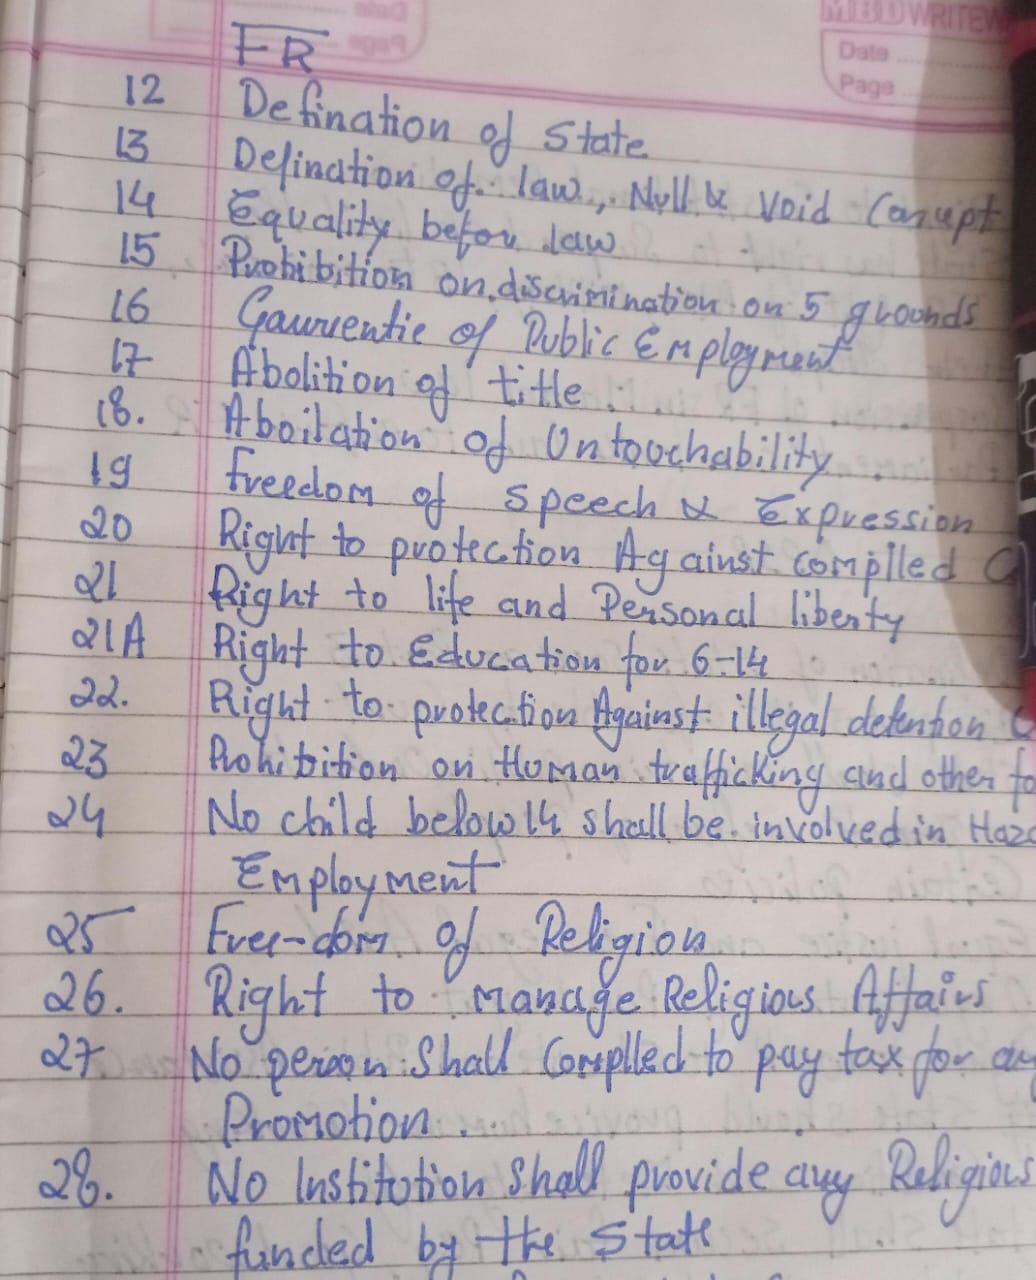 MBD WRITEW
Date
Page
FR
12 Defination of State
13 Defination of law, Null & Void
14 Equality befor law
15 Prohibition on discrimination on 5 grounds
16 Gaurrentie of Public Employment
17 Abolition of title
18. Aboilation of Untouchability
19 freedom of speech & Expression
20 Right to protection Against complled
21 Right to life and Personal liberty
21A Right to Education for 6-14
22. Right to protection Against illegal detention
23 Prohibition on Human trafficking and other
24 No child below 14 shall be involved in Haz
Employment
25 Free-dom of Religion
26. Right to manage Religious Affairs
27 No person Shall Complled to pay tax for
Promotion.
28. No Institution Shall provide any Religious
funded by the State